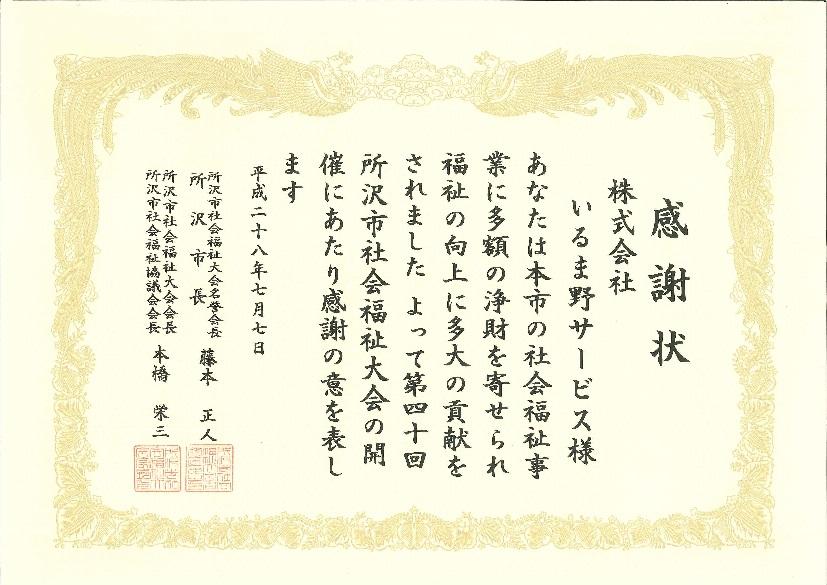 感謝状
株式会社
いるま野サービス様
あなたは本市の社会福祉事
業に多額の浄財を寄せられ
福祉の向上に多大の貢献を
されました よって第四十回
所沢市社会福祉大会の開
催にあたり感謝の意を表し
ます
平成二十八年七月七日
所沢市社会福祉大会名誉会長
所沢市長 藤本 正人
所沢市社会福祉大会会長
所沢市社会福祉協議会会長 本橋 栄三